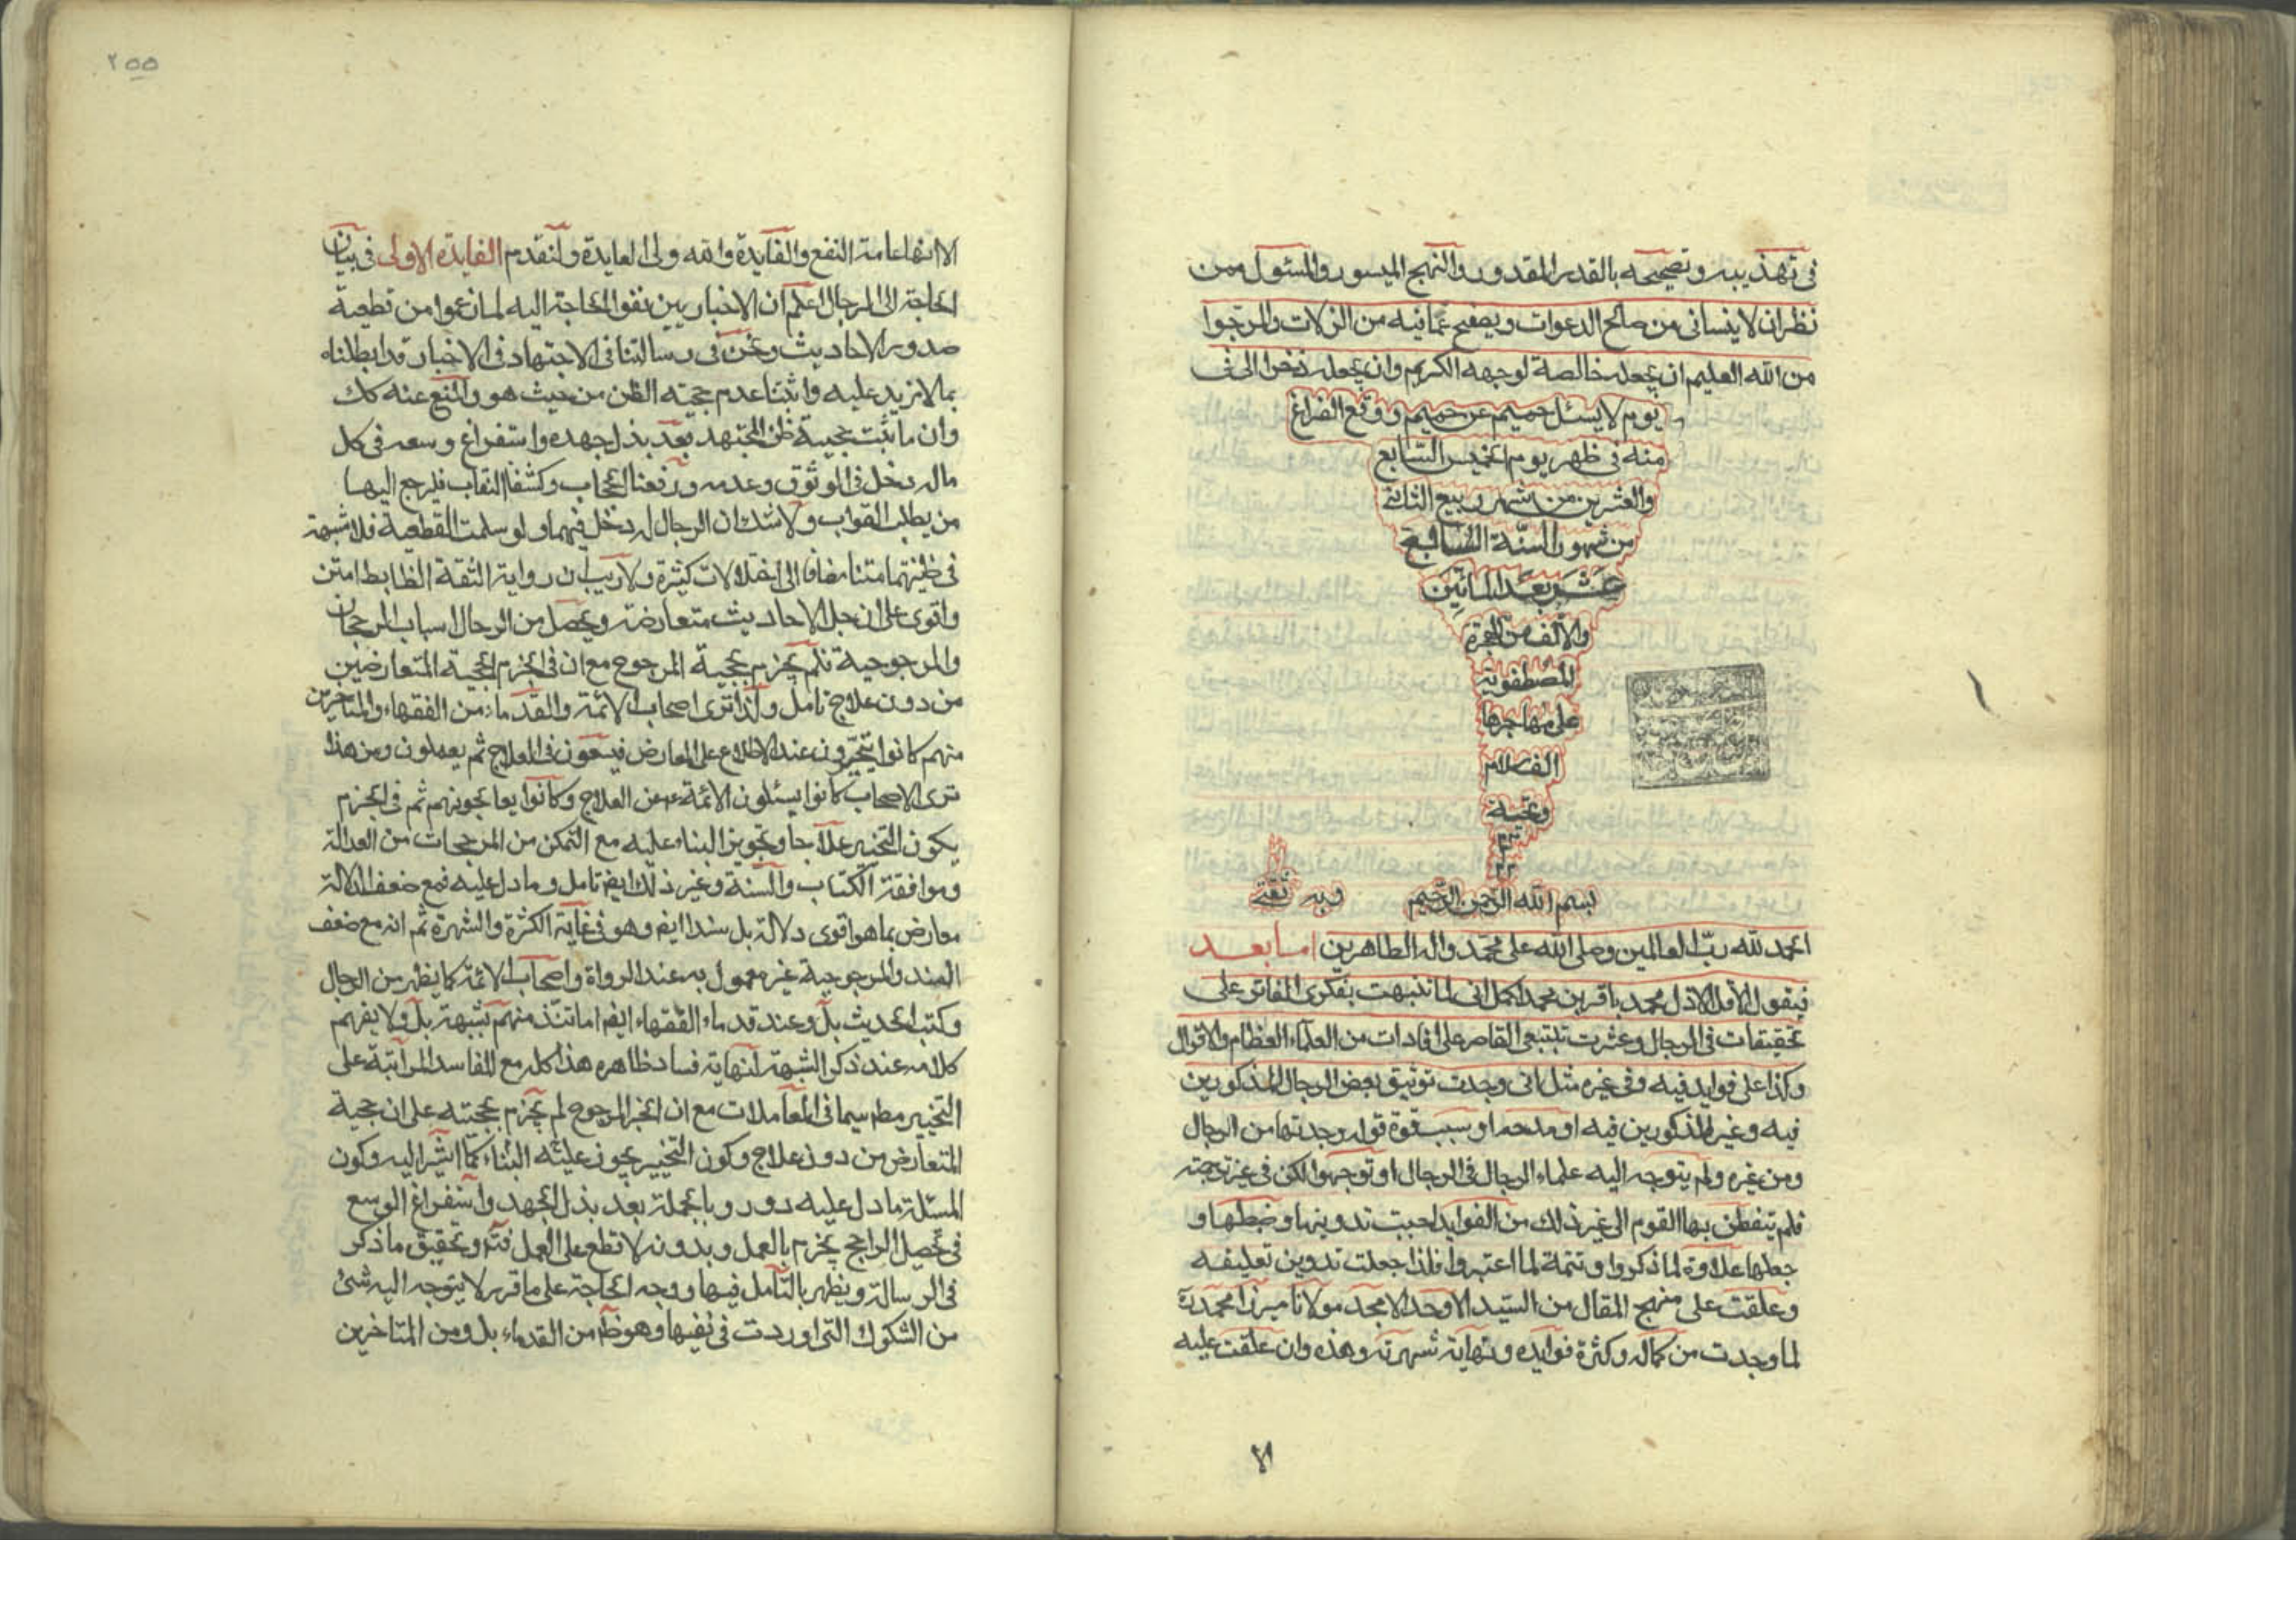 في تهذيبه وتصحيحه بالقدر المقدور والنهج الميسور والمسئول ممن
نظر ان لا ينساني من صالح الدعوات ويصفح عما فيه من الزلات والمرجوا
من الله العليم ان يجعله خالصة لوجهه الكريم وان يجعله ذخرا لي في
يوم لا يسئل حميم عن حميم ووقع الفراغ
منه في ظهر يوم الخميس السابع
والعشرين من شهر ربيع الثاني
من شهور السنة السابعة
عشر بعد المائتين
والالف من الهجرة
المصطفوية
على مهاجرها
الف سلام
وتحية
بسم الله الرحمن الرحيم وبه ثقتي
الحمد لله رب العالمين وصلى الله على محمد واله الطاهرين اما بعد
فيقول الاقل الاذل محمد باقر بن محمد اكمل اني لما تنبهت بفكري الفاتر على
تحقيقات في الرجال وعثرت بتتبعي القاصر على افادات من العلماء العظام والاقوال
وكذا على فوايد فيه وفي غيره مثل اني وجدت توثيق بعض الرجال المذكورين
فيه وغير المذكورين فيه او مدحه او سبب قوة قوله وجدتها من الرجال
ومن غيره ولم يتوجه اليه علماء الرجال في الرجال او توجهوا لكن في غير ترجمته
فلم يتفطن بها القوم الى غير ذلك من الفوايد احببت تدوينها وضبطها و
جعلها علاوة لما ذكروا وتتمة لما اعتبروا فلذا جعلت تدوين تعليقه
وعلقت على منهج المقال من السيد الاوحد الامجد مولانا ميرزا محمد ره
لما وجدت من كماله وكثرة فوايده ونهاية شهرته وهذه وان علقت عليه
٢٥٥
الا انها عامة النفع والفايدة والله ولي العايدة ولنقدم الفايدة الاولى في بيان
الحاجة الى الرجال اعلم ان الاخباريين نفوا الحاجة اليه لما زعموا من قطعية
صدور الاحاديث ونحن في رسالتنا في الاجتهاد في الاخبار قد ابطلناه
بما لا مزيد عليه واثبتنا عدم حجية الظن من حيث هو والمنع عنه كك
وان ما ثبت حجيته ظن المجتهد بعد بذل جهده واستفراغ وسعه في كل
ماله دخل في الوثوق وعدمه ورفعنا الحجاب وكشفنا النقاب فليرجع اليها
من يطلب الصواب ولا شك ان الرجال له دخل فيهما ولو سلمت القطعية فلا شبهة
في ظنيتها متنا مضافا الى اختلالات كثيرة ولا ريب ان رواية الثقة الظابط امتن
واقوى على ان جل الاحاديث متعارضة ويحصل من الرجال اسباب الرجحان
والمرجوحية فلم يجزم بحجية المرجوح مع ان في الجزم بحجية المتعارضين
من دون علاج تامل ولذا ترى اصحاب الائمة والقدماء من الفقهاء والمتاخرين
منهم كانوا يتحيرون عند الاطلاع على المعارض فيسعون في العلاج ثم يعملون ومن هذا
ترى الاصحاب كانوا يسئلون الائمة ع عن العلاج وكانوا يعالجونهم ثم في الجزم
يكون التخيير علاجا وتجويز البناء عليه مع التمكن من المرجحات من العدالة
وموافقة الكتاب والسنة وغير ذلك ايض تامل وما دل عليه فمع ضعف الدلالة
معارض بما هو اقوى دلالة بل سندا ايض وهو في غاية الكثرة والشهرة ثم انه مع ضعف
السند والمرجوحية غير معمول به عند الرواة واصحاب الائمة كما يظهر من الرجال
وكتب الحديث بل وعند قدماء الفقهاء ايض اما تنّذ منهم بشبهة بل ولا يفهم
كلامه عند ذكر الشبهة لنهاية فساد ظاهره هذا كله مع المفاسد المرتبة على
التخيير مط سيما في المعاملات مع ان الخبر المرجوح لم يجزم بحجيته على ان حجية
المتعارض من دون علاج وكون التخيير يجوز عليه البناء كما اشير اليه وكون
المسئلة ما دل عليه دور وبالجملة بعد بذل الجهد واستفراغ الوسع
في تحصيل الراجح يجزم بالعمل وبدونه لا قطع على العمل فتم وتحقيق ما ذكر
في الرسالة ويظهر بالتامل فيها ووجه الحاجة على ما قرر لا يتوجه اليه شئ
من الشكوك التي اوردت في نفيها وهو ظ من القدماء بل ومن المتاخرين